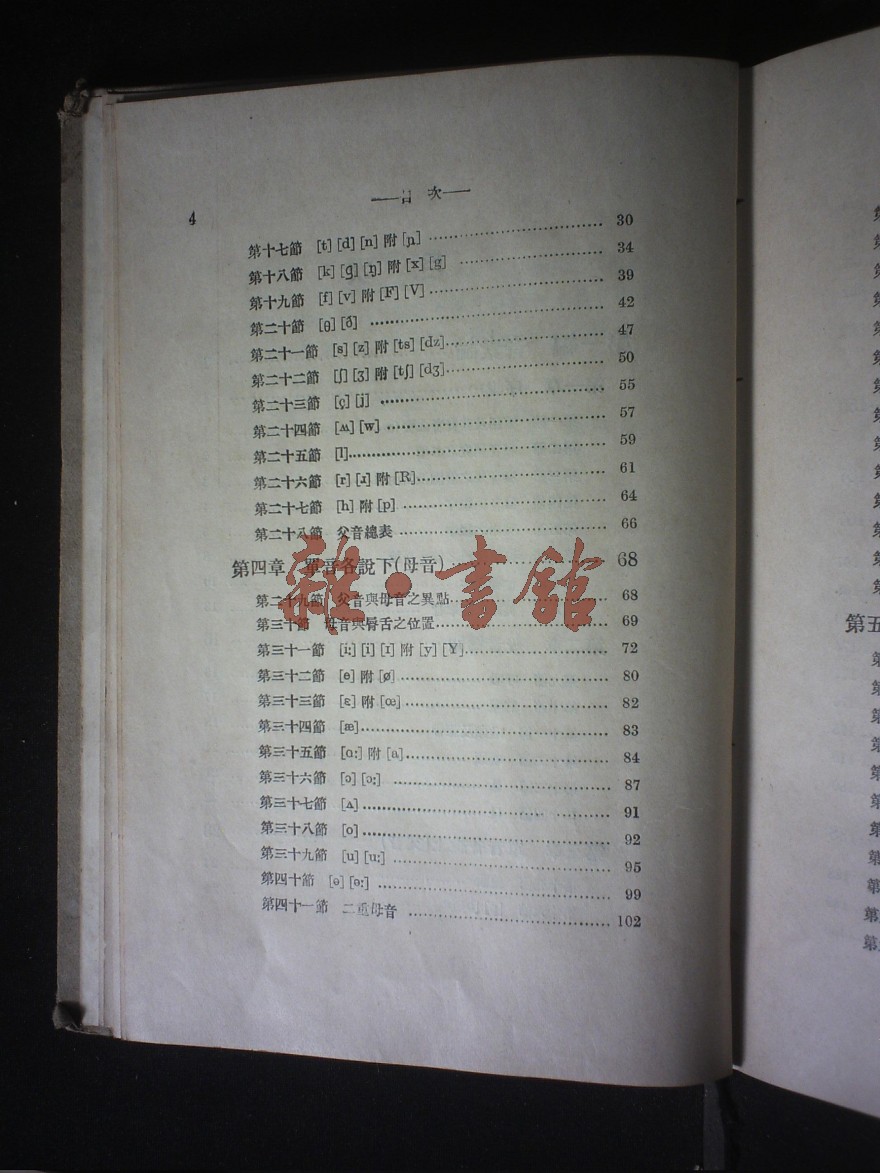 4
目 次
第十七節 [t] [d] [n] 附 [ɲ] 30
第十八節 [k] [g] [ŋ] 附 [x] [g] 34
第十九節 [f] [v] 附 [F] [V] 39
第二十節 [θ] [ð] 42
第二十一節 [s] [z] 附 [ts] [dz] 47
第二十二節 [ʃ] [ʒ] 附 [tʃ] [dʒ] 50
第二十三節 [ç] [j] 55
第二十四節 [ʍ] [w] 57
第二十五節 [l] 59
第二十六節 [r] [ɹ] 附 [R] 61
第二十七節 [h] 附 [p] 64
第二十八節 父音總表 66
第四章 單音各說下(母音) 68
第二十九節 父音與母音之異點 68
第三十節 母音與脣舌之位置 69
第三十一節 [i:] [i] [ɪ] 附 [y] [Y] 72
第三十二節 [e] 附 [ø] 80
第三十三節 [ε] 附 [œ] 82
第三十四節 [æ] 83
第三十五節 [ɑ:] 附 [a] 84
第三十六節 [ɔ] [ɔ:] 87
第三十七節 [ʌ] 91
第三十八節 [o] 92
第三十九節 [u] [u:] 95
第四十節 [ə] [ə:] 99
第四十一節 二重母音 102
雜·書館
第五